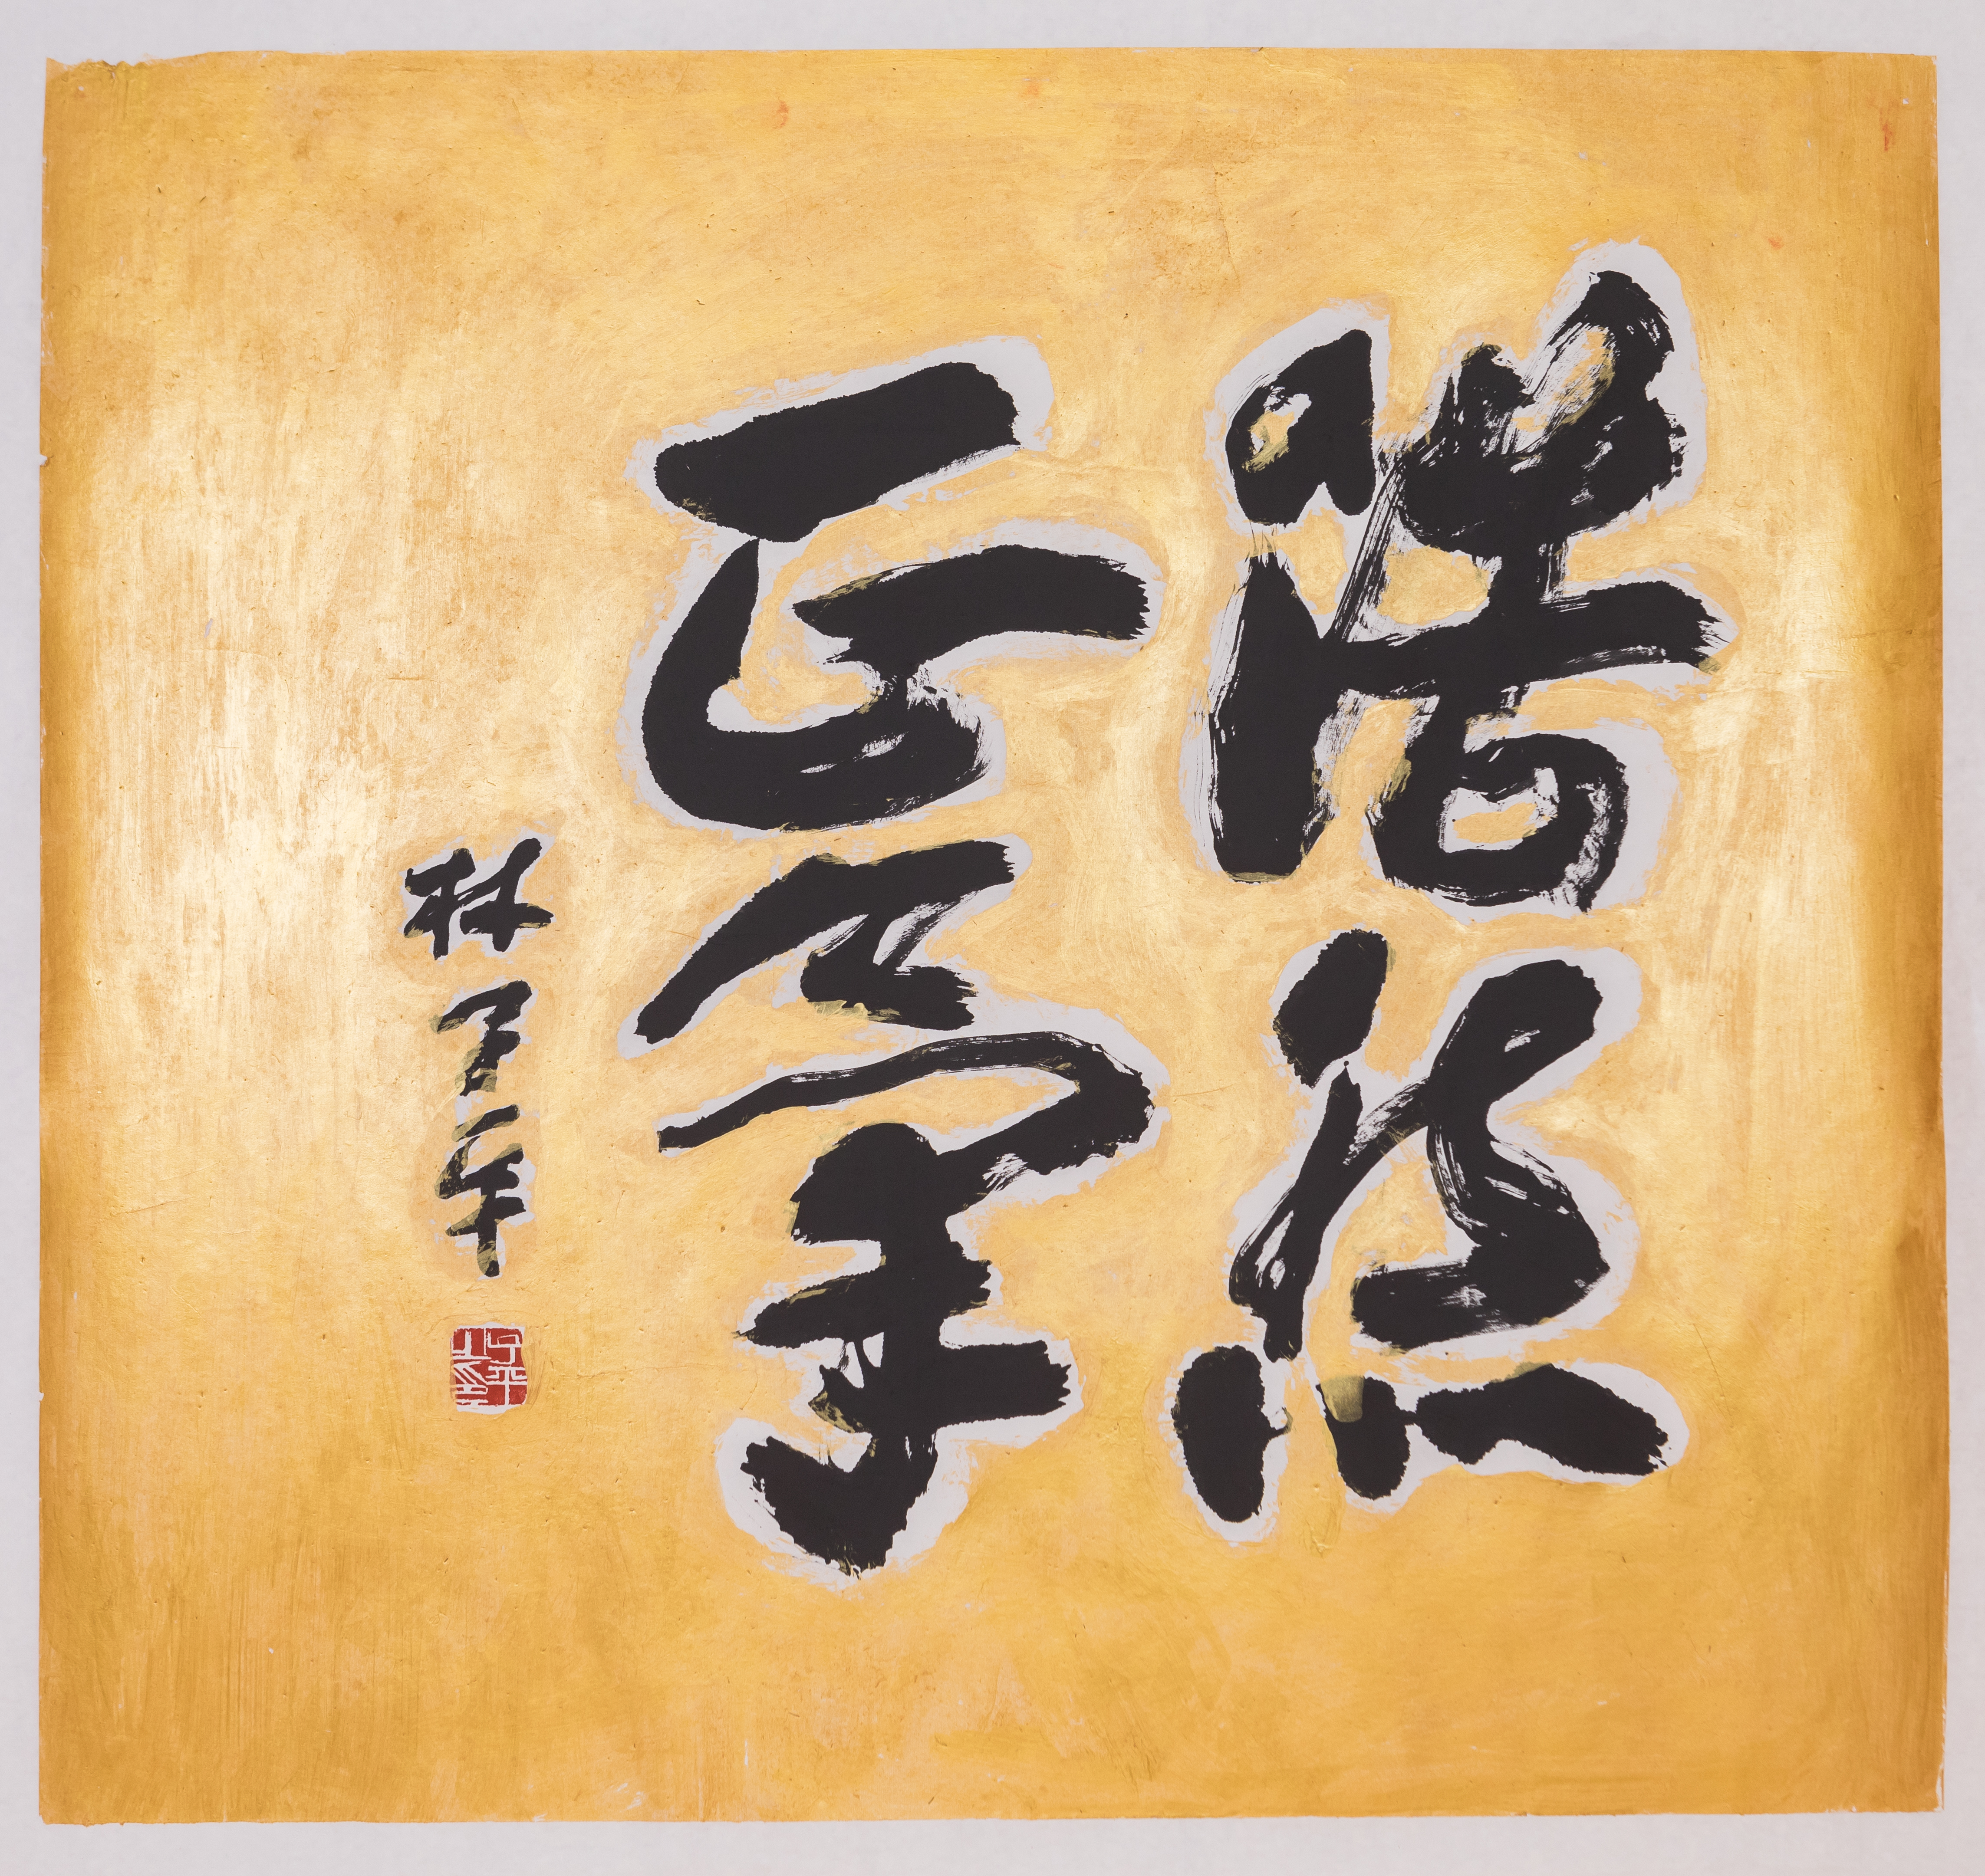 浩然
正氣
林子平